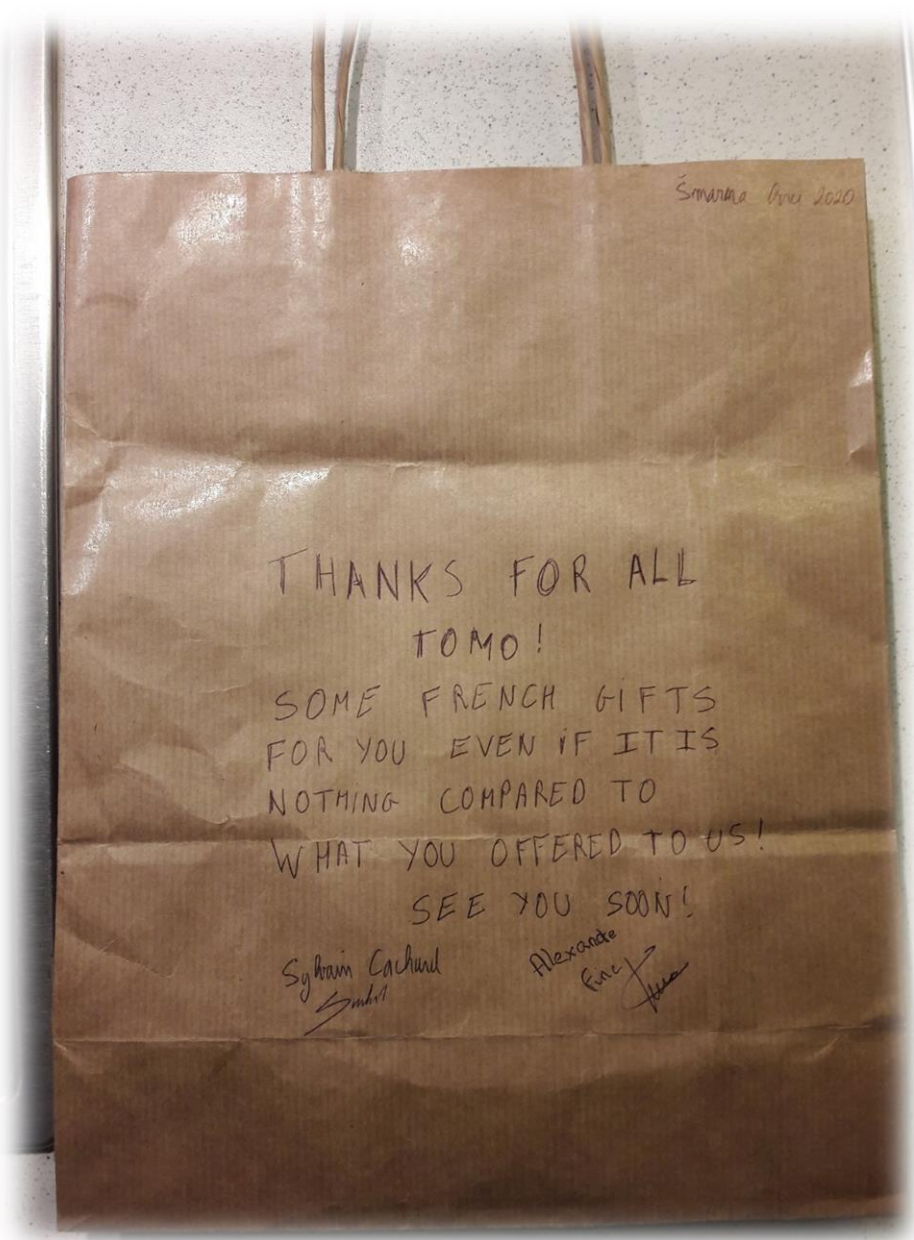 Šmarna Gora 2020
THANKS FOR ALL
TOMO!
SOME FRENCH GIFTS
FOR YOU EVEN iF IT IS
NOTHING COMPARED TO
WHAT YOU OFFERED TO US!
SEE YOU SOON!
Sylvain Cachard
Alexandre